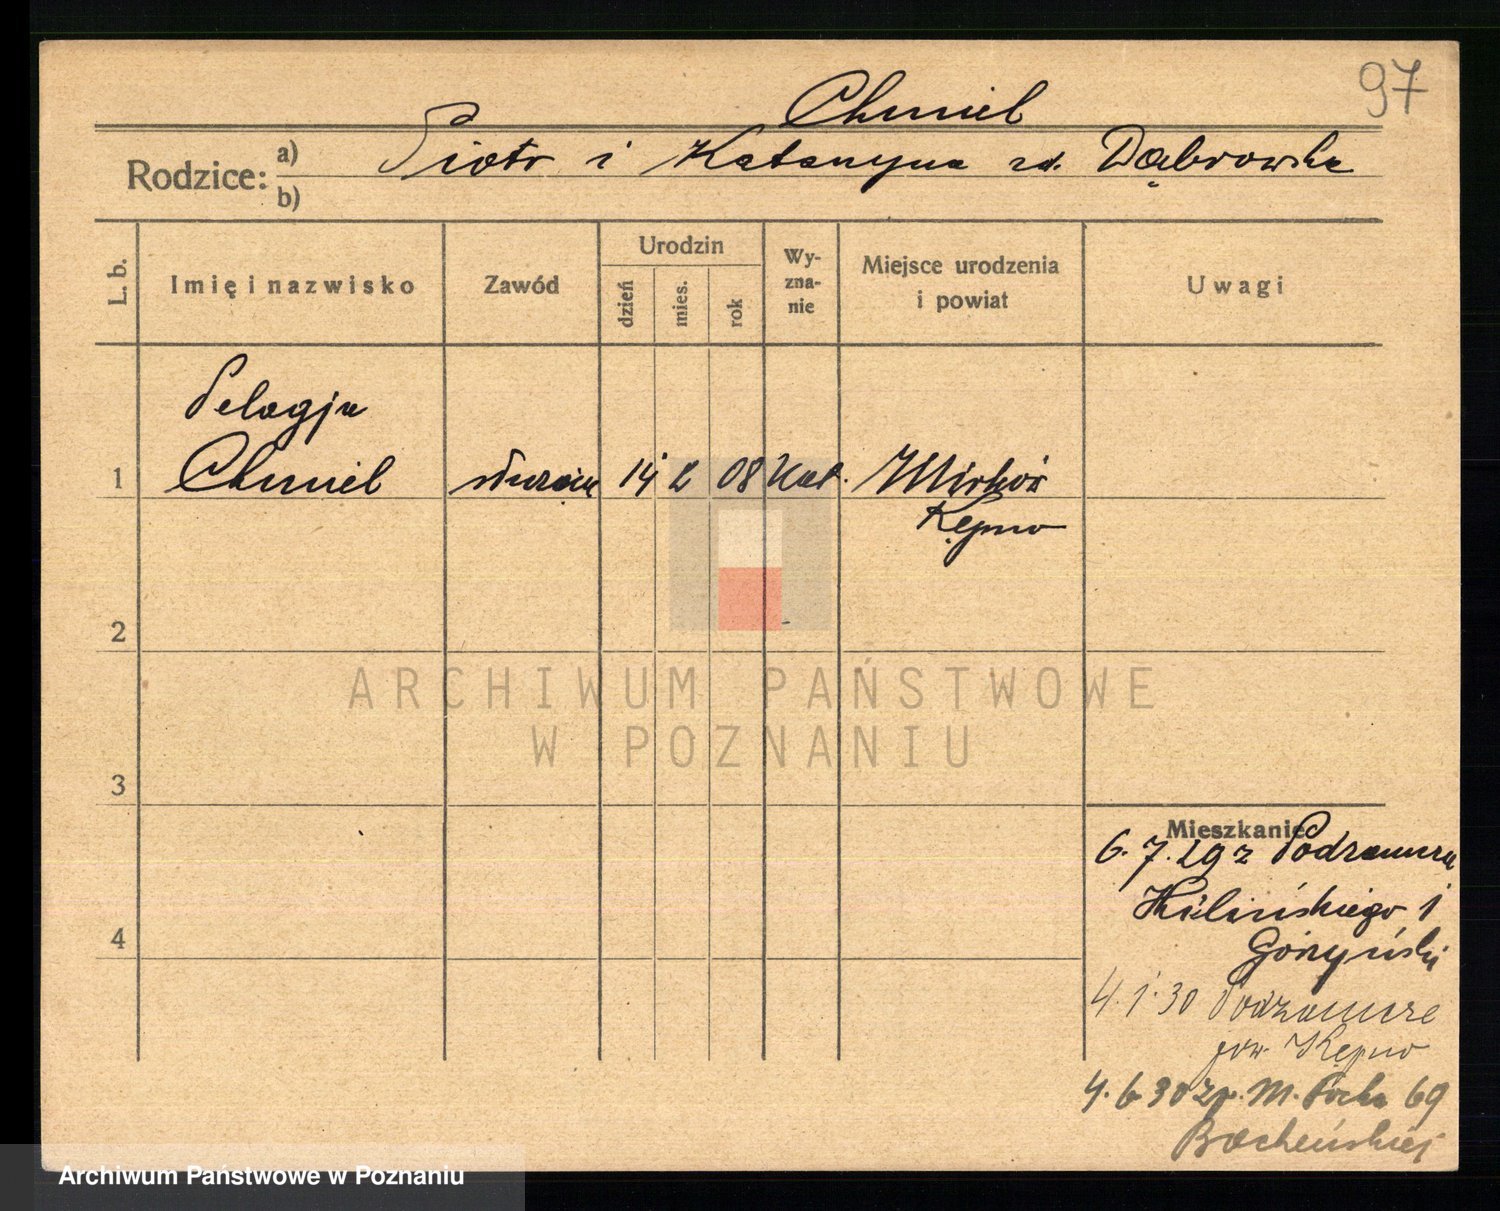 97
Chmiel
Rodzice: a) Piotr i Katarzyna zd. Dąbrowska
b)
L. b.
Imię i nazwisko
Zawód
Urodzin
dzień
mies.
rok
Wy-
zna-
nie
Miejsce urodzenia
i powiat
Uwagi
Pelagja
1 Chmiel służąca 14 2 08 Kat. Mirków
Kępno
2
3
4
ARCHIWUM PAŃSTWOWE
W POZNANIU
Mieszkanie
6.7.29 z Podzamcza
Kilińskiego 1
Górzyński
4.1.30 Podzamcze
pow. Kępno
4.6 30 M. Focha 69
Archiwum Państwowe w Poznaniu